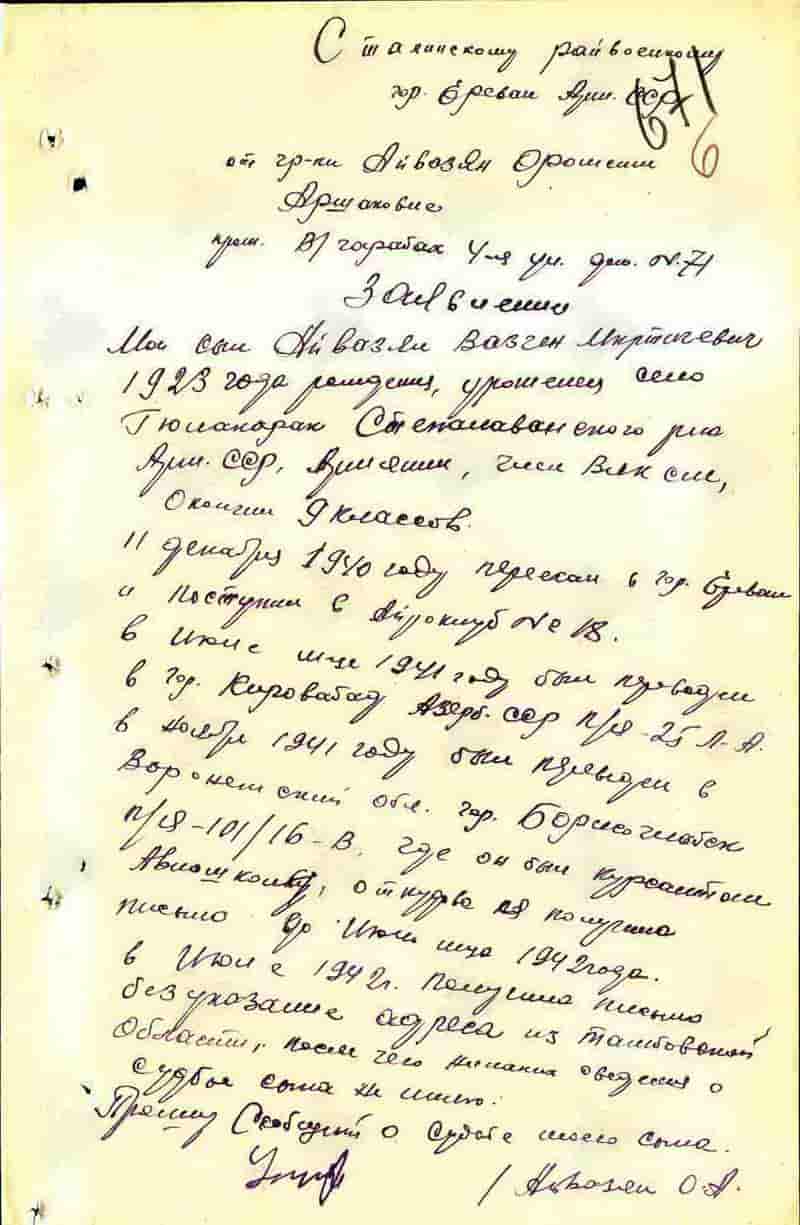 Сталинскому райвоенкому
гор. Ереван Арм. ССР
671
6
от гр-ки Айвазян Орошени
Аршаковне
прож. В/гарабах 4-я ул. дом. №71
Заявление
Мой сын Айвазян Вазген Мкртичевич
1923 года рождения, уроженец село
Гюлакарак Степанаванского р-на
Арм. ССР, Армянин, член ВЛКСМ,
Окончил 9 классов.
11 декабря 1940 году переехал в гор. Ереван
и поступил в Аэроклуб № 18.
в Июне м-це 1941 году был переведен
в гор. Кировабад Азерб. ССР п/я-25 Л-А.
в ноябре 1941 году был переведен в
Воронежский обл. гор. Борисоглебск
п/я-101/16-В, где он был курсантом
Авиашколы, откудова я получила
письмо до Июня м-ца 1942 года.
в Июле 1942г. Получила письмо
без указание адреса из тамбовский
Области, после чего никаких сведения о
судьбе сына не имею.
Прошу Сообщить о судьбе моего сына.
/Айвазян О.А.